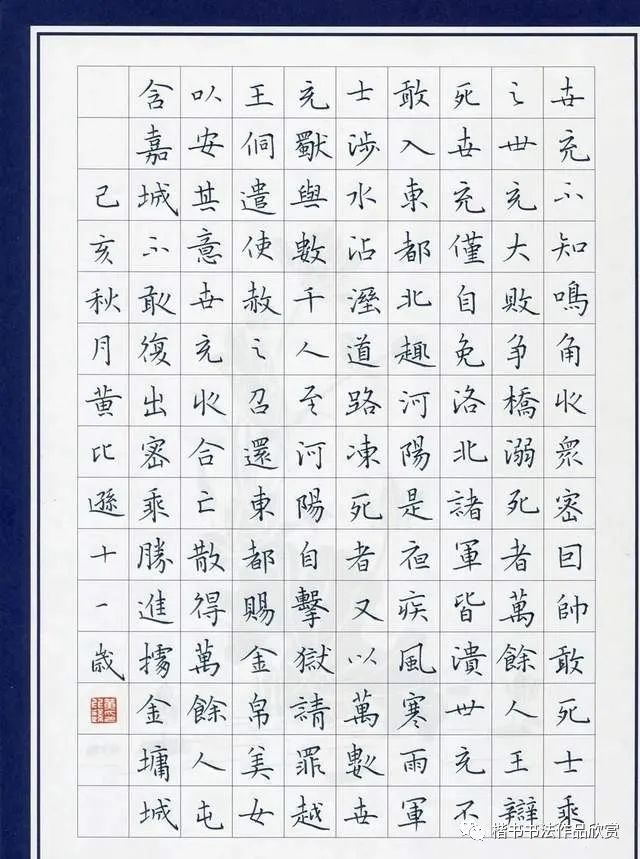 世充不知鳴角收眾密因帥敢死士乘
之世充大敗爭橋溺死者萬餘人王辯
死世充僅自免洛北諸軍皆潰世充不
敢入東都北趣河陽是夜疾風寒雨軍
士涉水沾溼道路凍死者又以萬數世
充獨與數千人至河陽自擊獄請罪越
王侗遣使赦之召還東都賜金帛美女
以安其意世充收合亡散得萬餘人屯
含嘉城不敢復出密乘勝進據金墉城
己亥秋月黃比遜十一歲
楷书书法作品欣赏